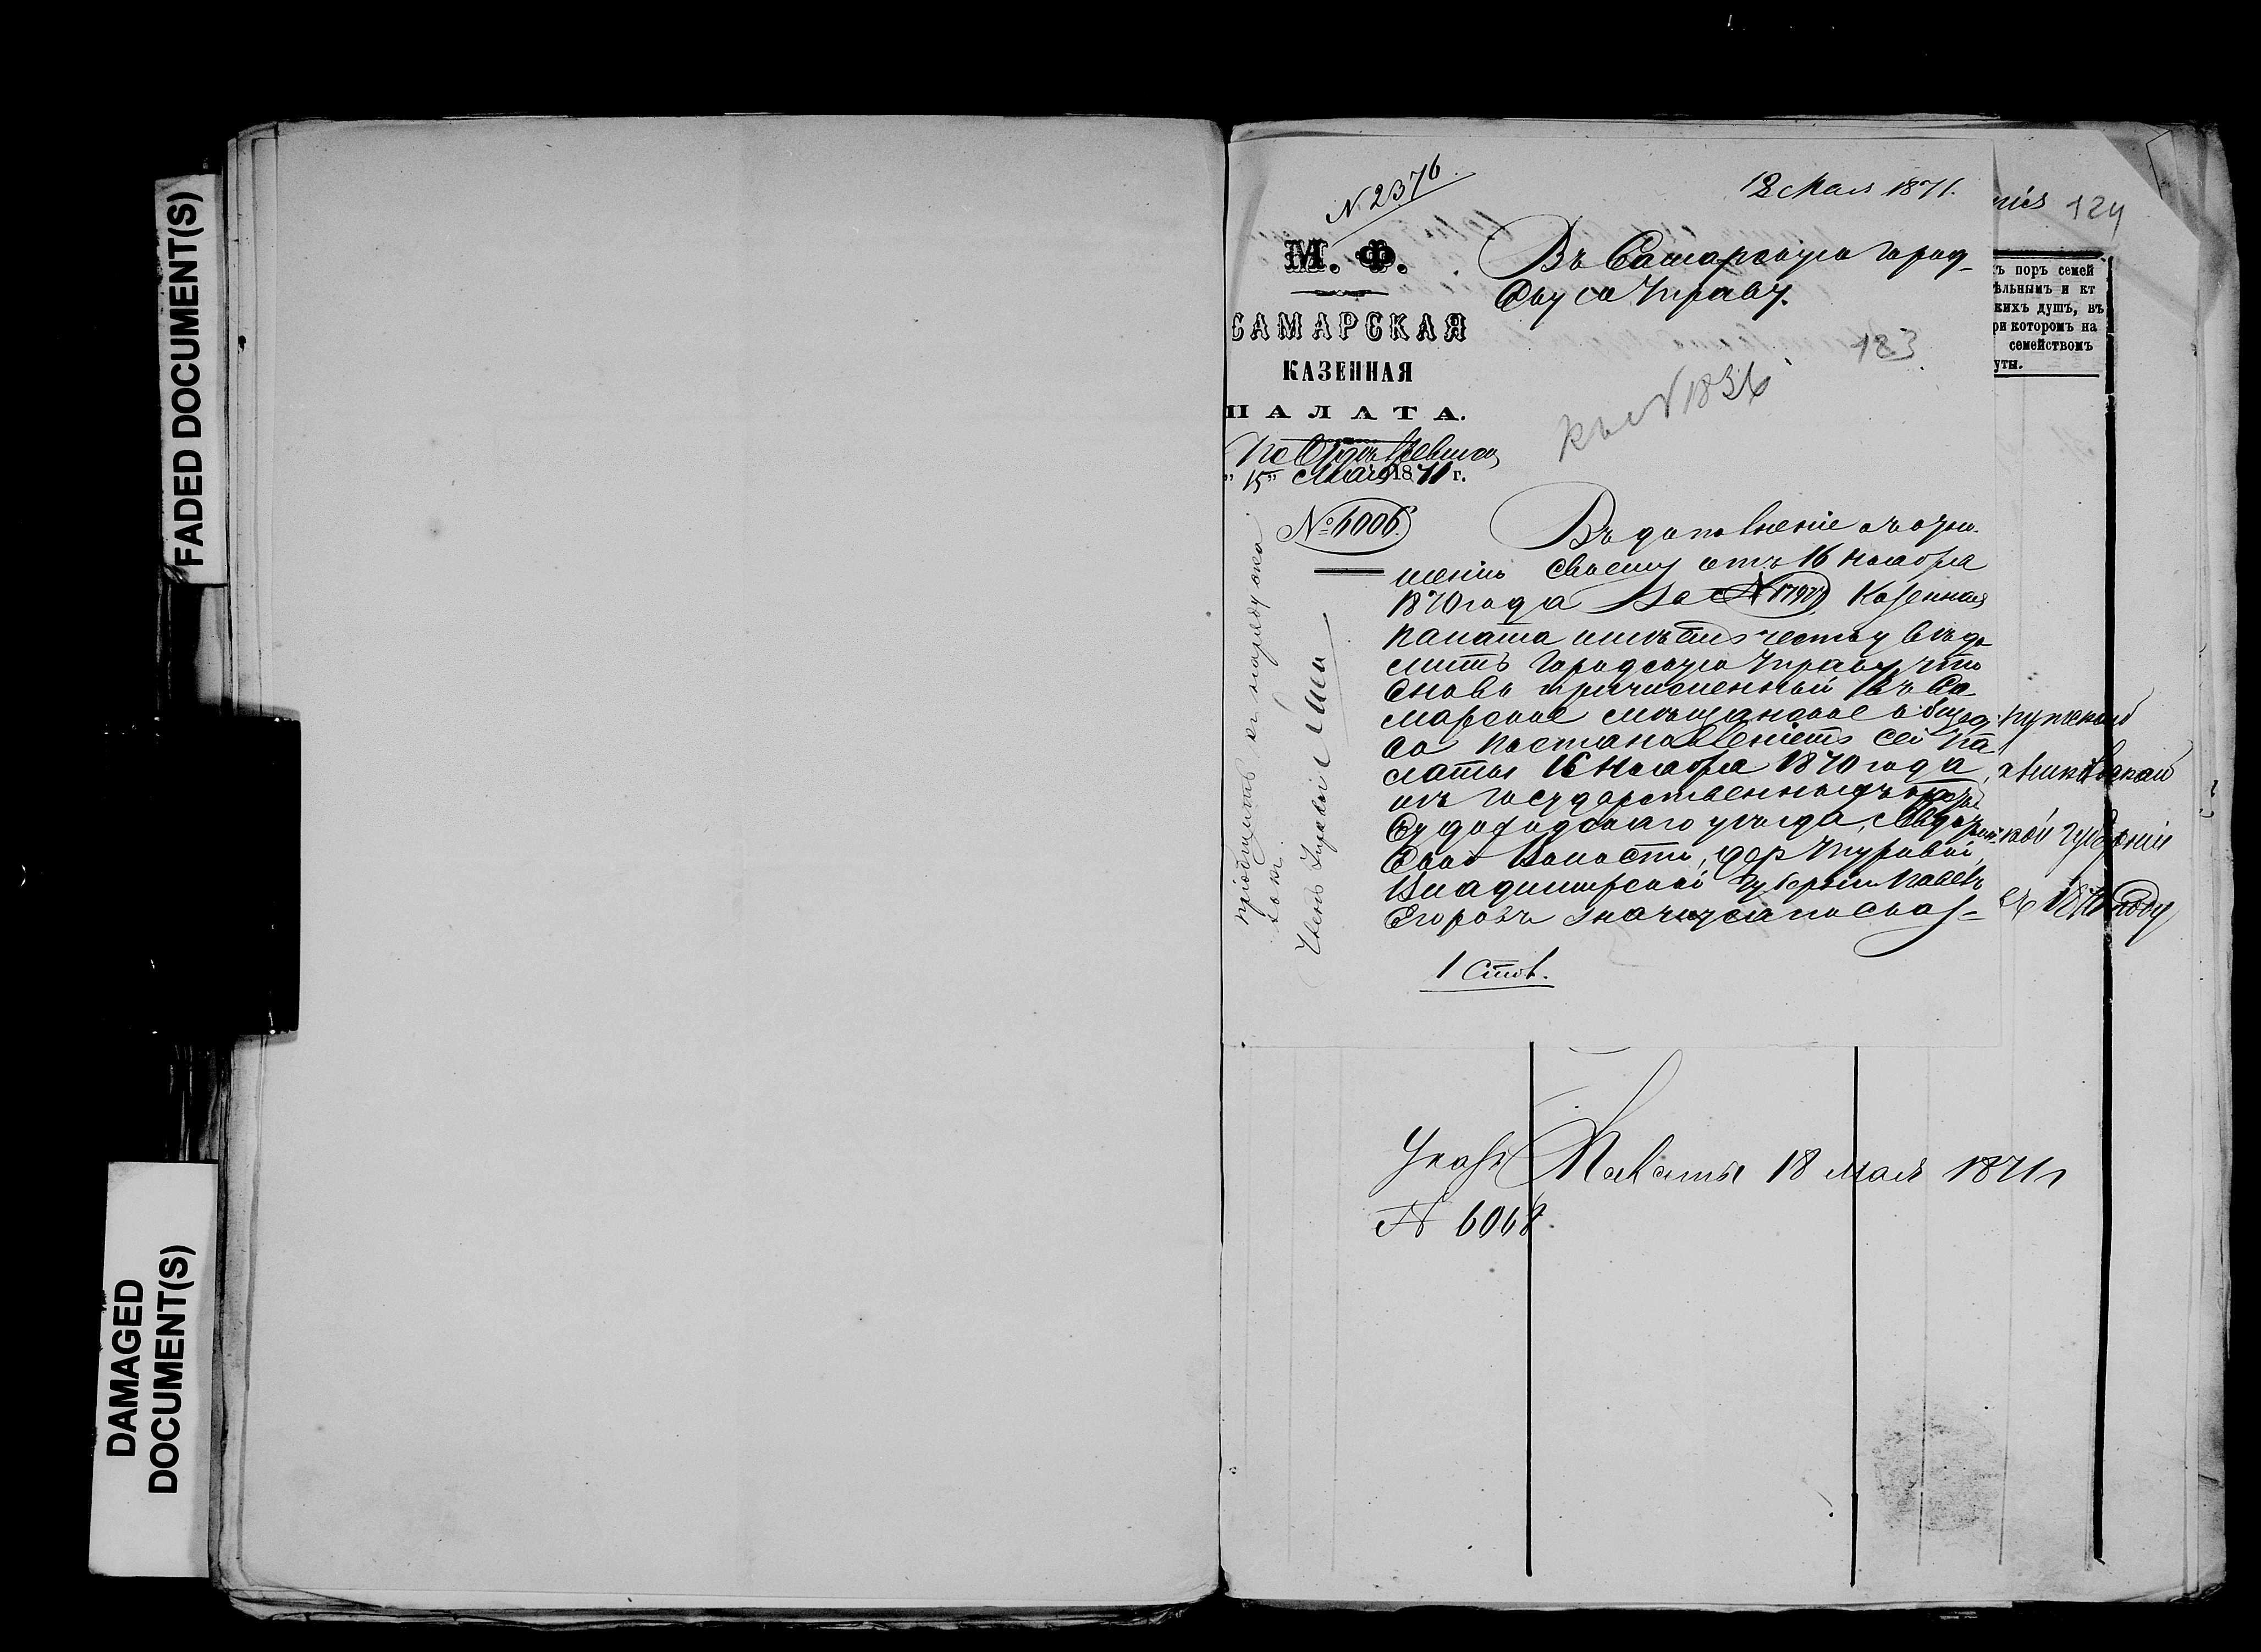 FADED DOCUMENT(S)
DAMAGED
DOCUMENT(S)
№ 2376
18 Мая 1871.
124
М. Ф.
САМАРСКАЯ
КАЗЕННАЯ
ПАЛАТА.
По Отдѣл
"15" Мая 1871 г.
№ 6006.
Въ Самарскую Город-
скую Управу.
183
къ № 1836
ъ поръ семей
ѣльнымъ и кт
кихъ душъ, въ
ри которомъ на
семействомъ
уты.
Въ дополненіе къ отно-
шенію своему отъ 16 Ноября
1870 года за № Казенная
Палата имѣетъ честь увѣдо
мить Городскую Управу, что
вновь причисленный въ Са
марское мѣщанское общес
во постановленіемъ сей Па
латы 16 Ноября 1870 года
изъ государственныхъ крест
Судогодскаго уѣзда,
ской Волости, дер
Владимирской Губерніи Павелъ
Егоровъ значится по сказ-
1 Стол.
пріобщить къ
Членъ Управы
кой губерніи
1870 году
Указъ Палаты 18 мая 1871 г
№ 6068.